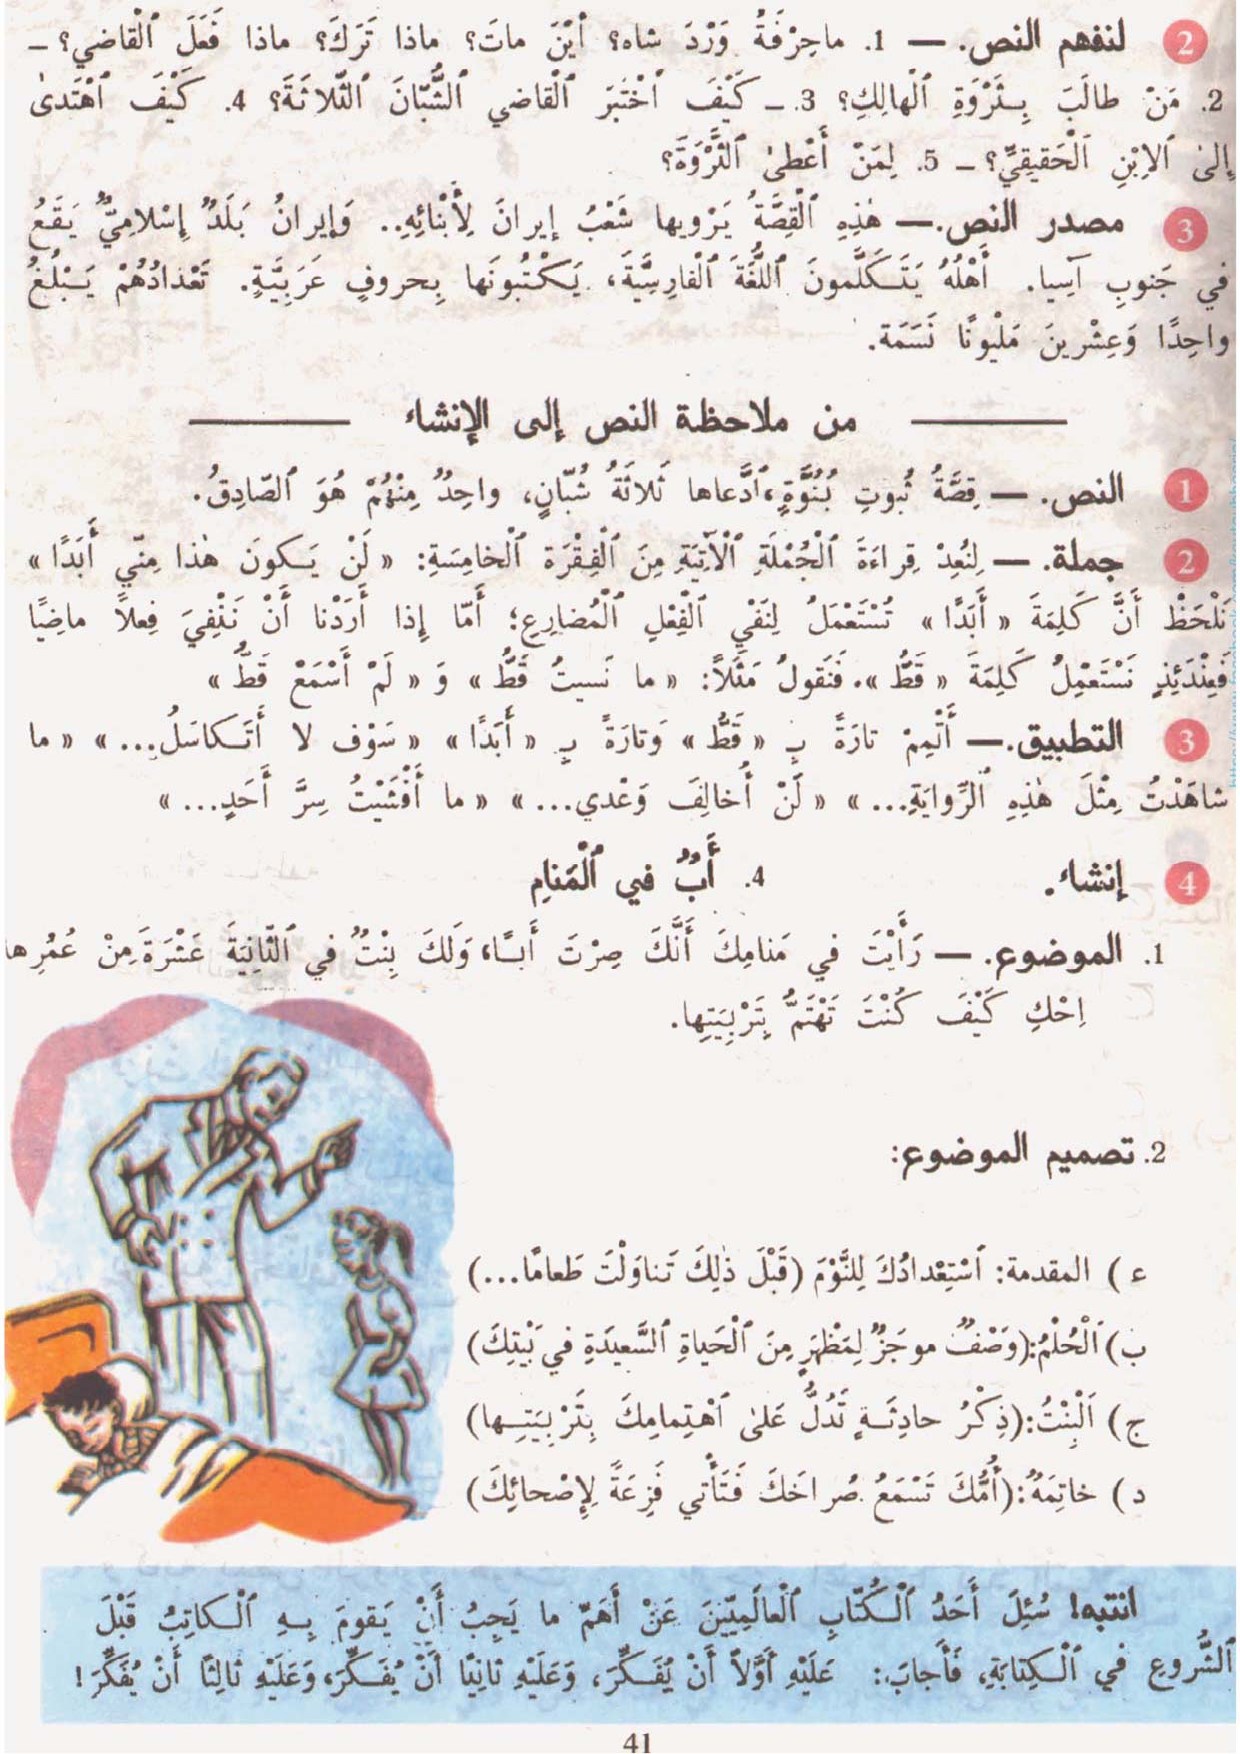 2 لنفهم النص. — 1. ماحِرْفَةُ وَرْدَ شاه؟ أَيْنَ ماتَ؟ ماذا تَرَكَ؟ ماذا فَعَلَ ٱلْقاضي؟ —
2. مَنْ طالَبَ بِـثَرْوَةِ ٱلْهالِكِ؟ 3. — كَيْفَ ٱخْتَبَرَ ٱلْقاضي ٱلشُّبّانَ ٱلثَّلاثَةَ؟ 4. كَيْفَ ٱهْتَدىٰ
إِلىٰ ٱلاِبْنِ ٱلْحَقيقِيِّ؟ — 5. لِمَنْ أَعْطىٰ ٱلثَّرْوَةَ؟
3 مصدر النص. — هٰذِهِ ٱلْقِصَّةُ يَرْويها شَعْبُ إيرانَ لِأَبْنائِهِ.. وَإيرانُ بَلَدٌ إِسْلامِيٌّ يَقَعُ
في جَنوبِ آسِيا. أَهْلُهُ يَتَـكَلَّمونَ ٱللُّغَةَ ٱلْفارِسِيَّةَ، يَـكْتُبونَها بِحروفٍ عَرَبِيَّةٍ. تَعْدادُهُمْ يَـبْلُغُ
واحِدًا وَعِشْرينَ مَلْيونًا نَسَمَة.
من ملاحظة النص إلى الإنشاء
1 النص. — قِصَّةُ ثُبوتِ بُنُوَّةٍ، ٱدَّعاها ثَلاثَةُ شُبّانٍ، واحِدٌ مِنْهُمْ هُوَ ٱلصّادِقُ.
2 جملة. — لِنُعِدْ قِراءَةَ ٱلْجُمْلَةِ ٱلْآتِيَةِ مِنَ ٱلْفِقْرَة ٱلْخامِسَةِ: « لَنْ يَـكونَ هٰذا مِنّي أَبَدًا »
نَلْحَظُ أَنَّ كَلِمَةَ « أَبَدًا » تُسْتَعْمَلُ لِنَفْيِ ٱلْفِعْلِ ٱلْمُضارِعِ؛ أَمّا إِذا أَرَدْنا أَنْ نَنْفِيَ فِعلاً ماضِيًا
فَعِنْدَئِذٍ نَسْتَعْمِلُ كَلِمَةَ « قَطُّ ». فَنَقولُ مَثَلاً: « ما نَسيتُ قَطُّ » وَ « لَمْ أَسْمَعْ قَطُّ »
3 التطبيق. — أَتْمِمْ تارَةً بِـ « قَطُّ » وَتارَةً بِـ « أَبَدًا » « سَوْف لا أَتَـكاسَلُ... » « ما
شاهَدْتُ مِثْلَ هٰذِهِ ٱلرِّوايَةِ... » « لَنْ أُخالِفَ وَعْدي... » « ما أَفْشَيْتُ سِرَّ أَحَدٍ... »
4 إنشاء. 4. أَبٌ في ٱلْمَنامِ
1. الموضوع. — رَأَيْتَ في مَنامِكَ أَنَّكَ صِرْتَ أَبـًا، وَلَكَ بِنْتٌ في ٱلثّانِيَةَ عَشْرَةَ مِنْ عُمُرِها
اِحْكِ كَيْفَ كُنْتَ تَهْتَمُّ بِتَرْبِيَتِها.
2. تصميم الموضوع:
ء) المقدمة: ٱسْتِعْدادُكَ لِلنَّوْمَ (قَبْلَ ذٰلِكَ تَناوَلْتَ طَعامًا...)
ب) ٱلْحُلْمُ: (وَصْفٌ موجَزٌ لِمَظْهَرٍ مِنَ ٱلْحَياةِ ٱلسَّعيدَةِ في بَيْتِكَ)
ج) ٱلْبِنْتُ: (ذِكْرُ حادِثَـةٍ تَدُلُّ عَلىٰ ٱهْتِمامِكَ بِتَرْبِيَتِـها)
د) خاتِمَةٌ: (أُمُّكَ تَسْمَعُ صُراخَكَ فَتَأْتي فَزِعَةً لِإِصْحائِكَ)
انتبه! سُئِلَ أَحَدُ ٱلْـكُتّابِ ٱلْعالَمِيّينَ عَنْ أَهَمِّ ما يَجِبُ أَنْ يَقومَ بِـهِ ٱلْـكاتِبُ قَبْلَ
ٱلشُّروعِ في ٱلْـكِتابَةِ، فَأَجابَ: عَلَيْهِ أَوَّلاً أَنْ يُفَـكِّرَ، وَعَلَيْهِ ثانِيًا أَنْ يُفَـكِّرَ، وَعَلَيْهِ ثالِثًا أَنْ يُفَكِّرَ!
41